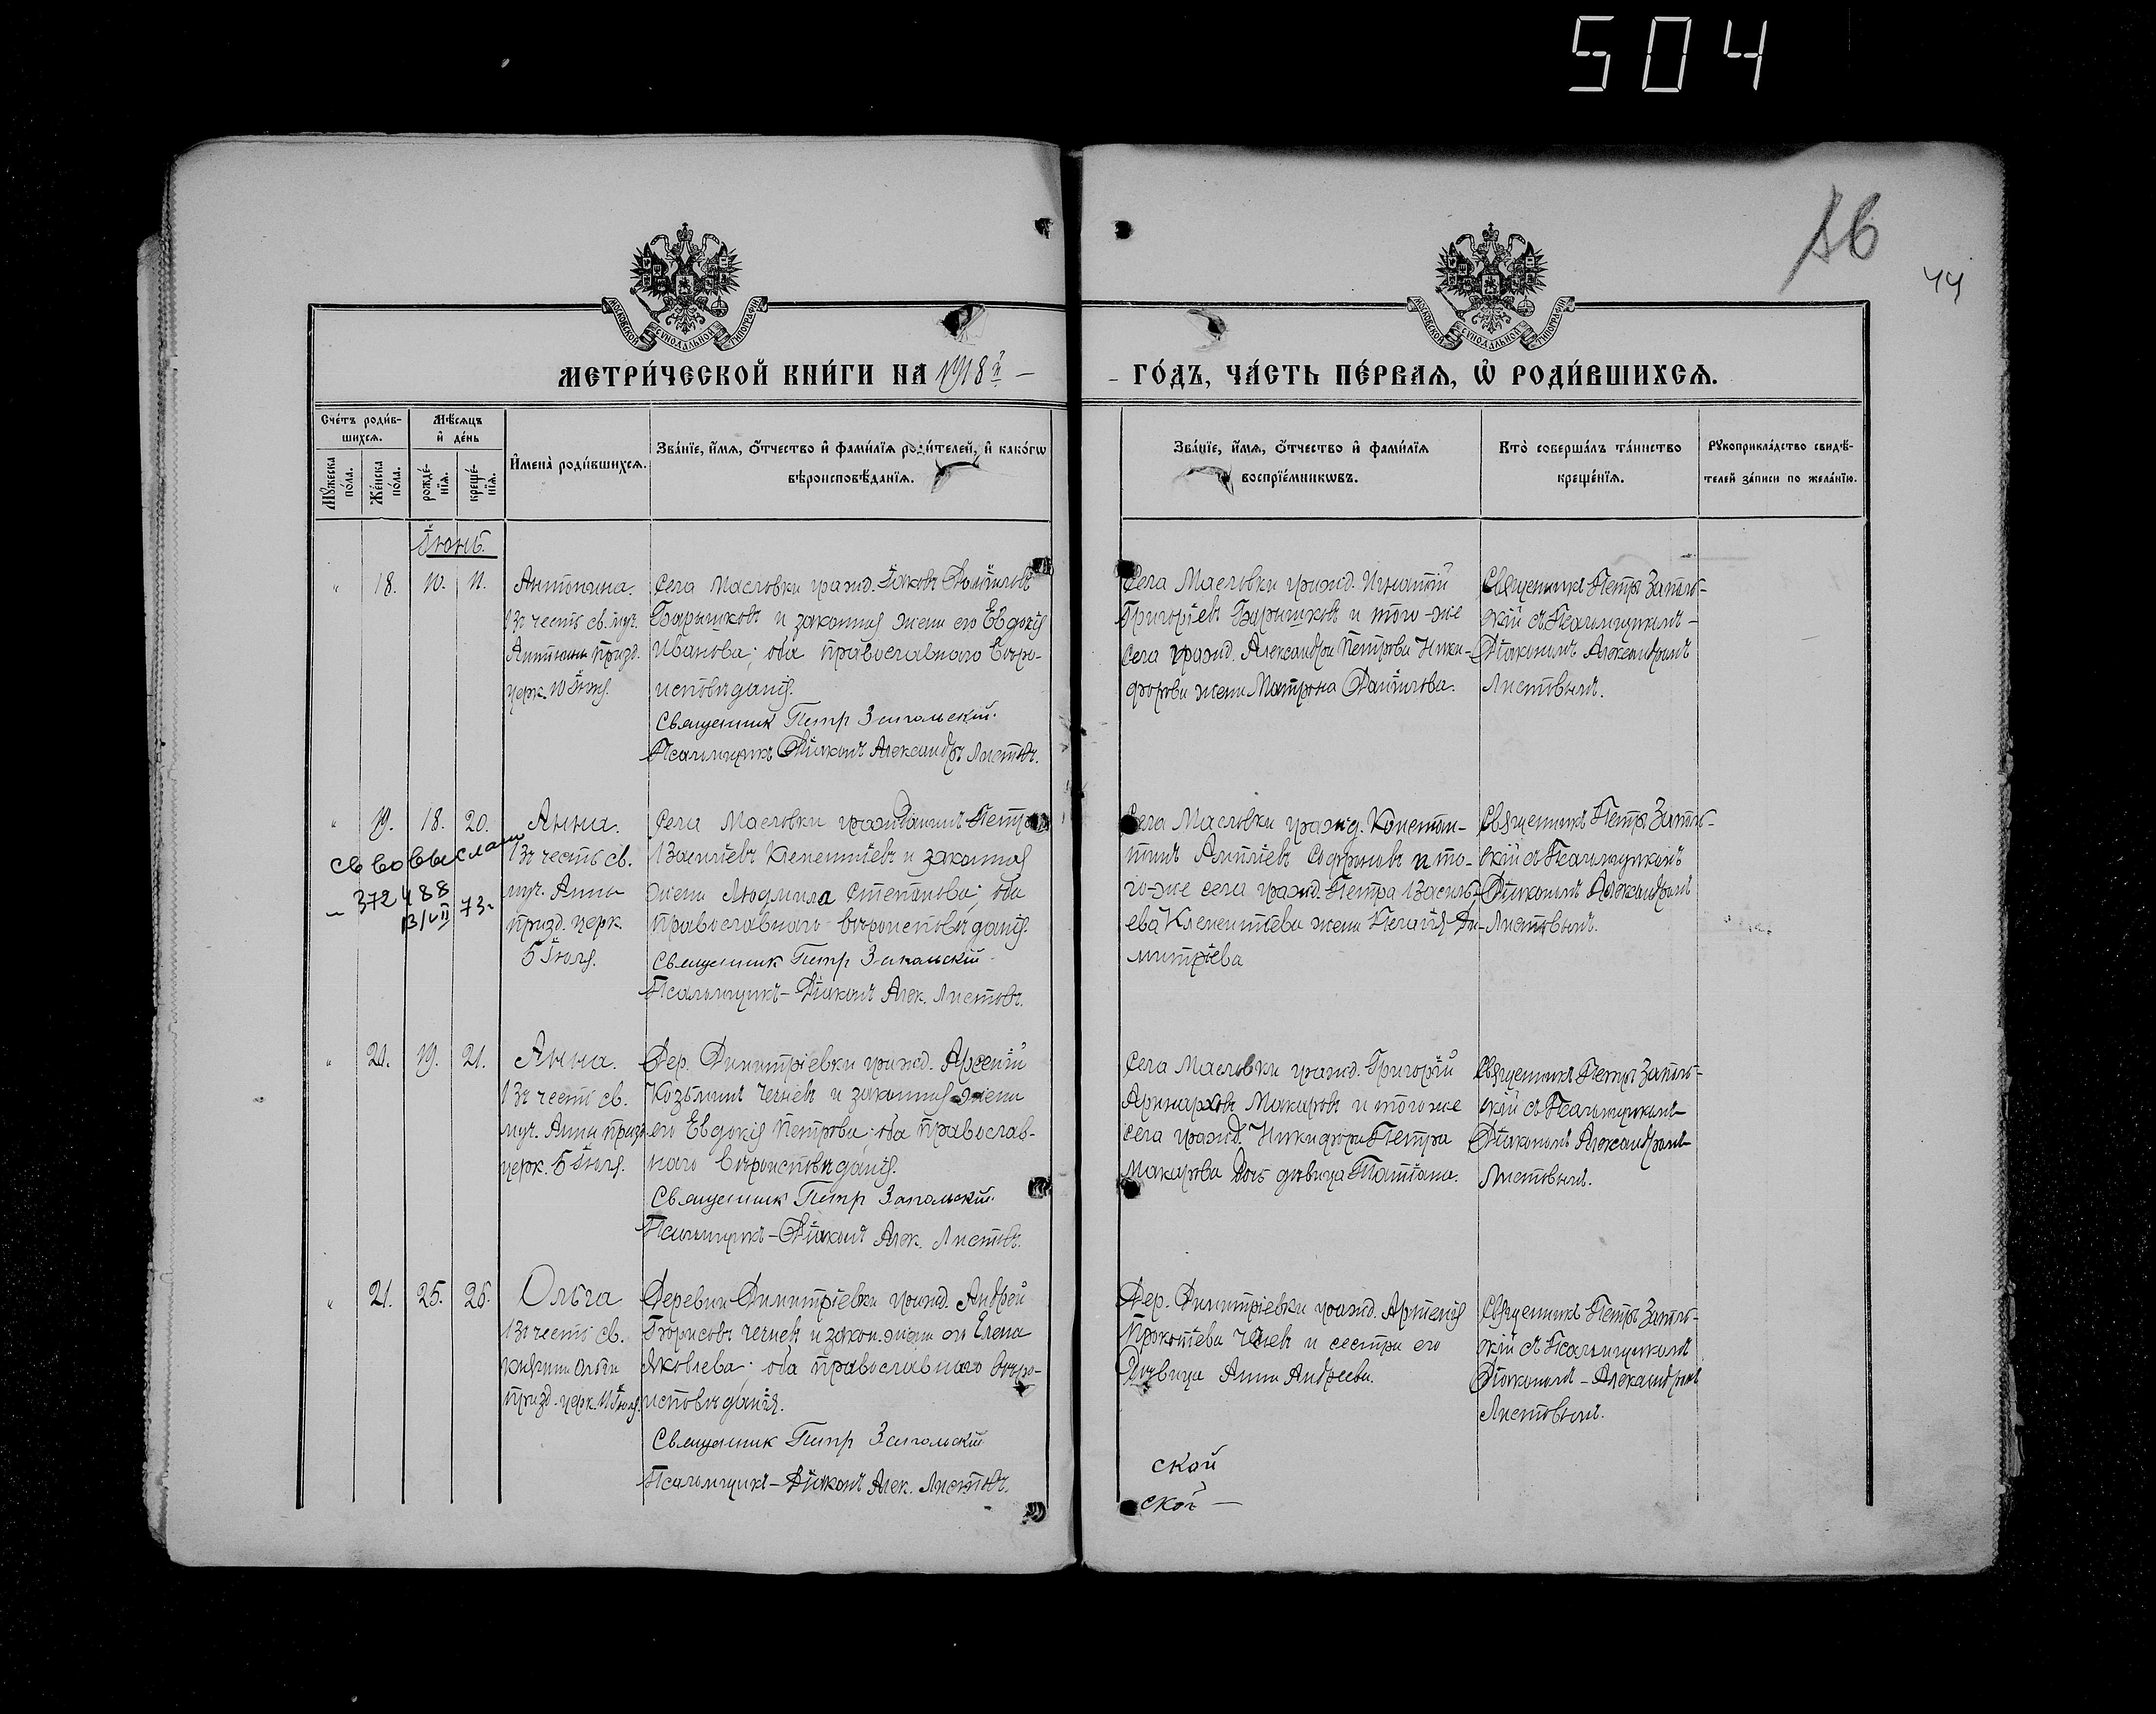 504
16
44
МОСКОВСКОЙ СѴНОДАЛЬНОЙ ТИПОГРАФІИ
МОСКОВСКОЙ СѴНОДАЛЬНОЙ ТИПОГРАФІИ
МЕТРИ́ЧЕСКОЙ КНИ́ГИ НА 1918й —
– ГО́ДЪ, ЧА́СТЬ ПЕ́РВАЯ, Ѡ РОДИ́ВШИХСЯ.
Сче́тъ роди́в-
шихся.
Мѣ́сяцъ
и҆ де́нь
Мꙋ́жеска
по́ла.
Же́нска
по́ла.
рожде́-
нїя.
креще́-
нїя.
И҆мена̀ роди́вшихся.
Зва́нїе, и҆́мя, ѻ҆́тчество и҆ фами́лїя роди́телей, и҆ како́гѡ
вѣроисповѣ́данїя.
Зва́нїе, и҆́мя, ѻ҆́тчество и҆ фами́лїя
воспрїе́мникѡвъ.
Кто̀ соверша́лъ та́инство
креще́нїя.
Рꙋкоприкла́дство свидѣ́-
телей за́писи по жела́нїю.
Іюнь.
" 18. 10. 11.
Антонина.
Въ честь св. муч.
Антонины празд.
церк. 10 Іюня.
Села Масловки гражд. Іаковъ
Барышковъ и законная жена его Евдокія
Иванова; оба православнаго вѣро-
исповѣданія.
Священник Петр Запольскій.
Псаломщикъ Діаконъ Александръ Листовъ.
Села Масловки гражд. Игнатій
Григоріевъ Барышковъ и того-же
села гражд. Александра Петрова Ники-
форова жена Матрона Даніилова.
Священникъ Петръ Заполь-
скій съ Псаломщикомъ-
Діакономъ Александромъ
Листовымъ.
" 19. 18. 20.
св во выслан
– 372488
13/VII 73г
Анна.
Въ честь св.
муч. Анны
празд. церк.
5 Іюля.
Села Масловки гражданинъ Петръ
Василіевъ Клементіевъ и законная
жена Людмила Степанова; оба
православнаго вѣроисповѣданія.
Священник Петр Запольскій
Псаломщикъ-Діаконъ Алек. Листовъ.
Села Масловки гражд. Констан-
тинъ Софроновъ и то-
го-же села гражд. Петра Василь-
ева Клементіева жена Пелагія Ди-
митріева
Священникъ Петръ Заполь-
скій съ Псаломщикомъ
Діакономъ Александромъ
Листовымъ.
" 20. 19. 21.
Анна.
Въ честь св.
муч. Анны празд.
церк. 5 Іюля.
Дер. Димитріевки гражд. Арсеній
Козьминъ Чечневъ и законная жена
его Евдокія Петрова; оба православ-
наго вѣроисповѣданія.
Священник Петр Запольскій.
Псаломщикъ-Діаконъ Алек. Листовъ.
Села Масловки гражд. Григорій
Макаровъ и того же
села гражд. Петра
Макарова дочь дѣвица Татіана.
Священникъ Петръ Заполь-
скій съ Псаломщикомъ-
Діакономъ Александромъ
Листовымъ.
" 21. 25. 26.
Ольга
Въ честь св.
княгини Ольги
празд. церк. 11 Іюля.
Деревни Димитріевки гражд. Андрей
Борисовъ и закон. жена его Елена
Яковлева; оба православнаго вѣро-
исповѣданія.
Священник Петр Запольскій
Псаломщикъ-Діаконъ Алек. Листовъ.
Дер. Димитріевки гражд.
Прокопіева и сестра его
дѣвица Анна Андреева.
Священникъ Петръ Заполь-
скій съ Псаломщикомъ
Діакономъ-Александромъ
Листовымъ.
ской
ской —